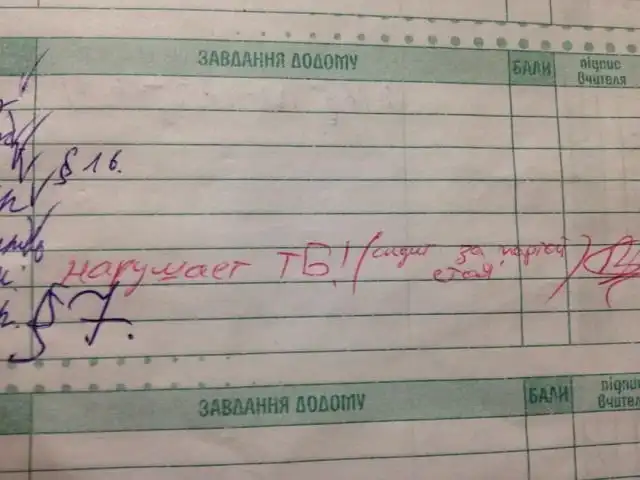 ЗАВДАННЯ ДОДОМУ БАЛИ підпис вчителя
§ 16.
нарушает ТБ! (сидит за партой стоя)
§ 7.
ЗАВДАННЯ ДОДОМУ БАЛИ підпис